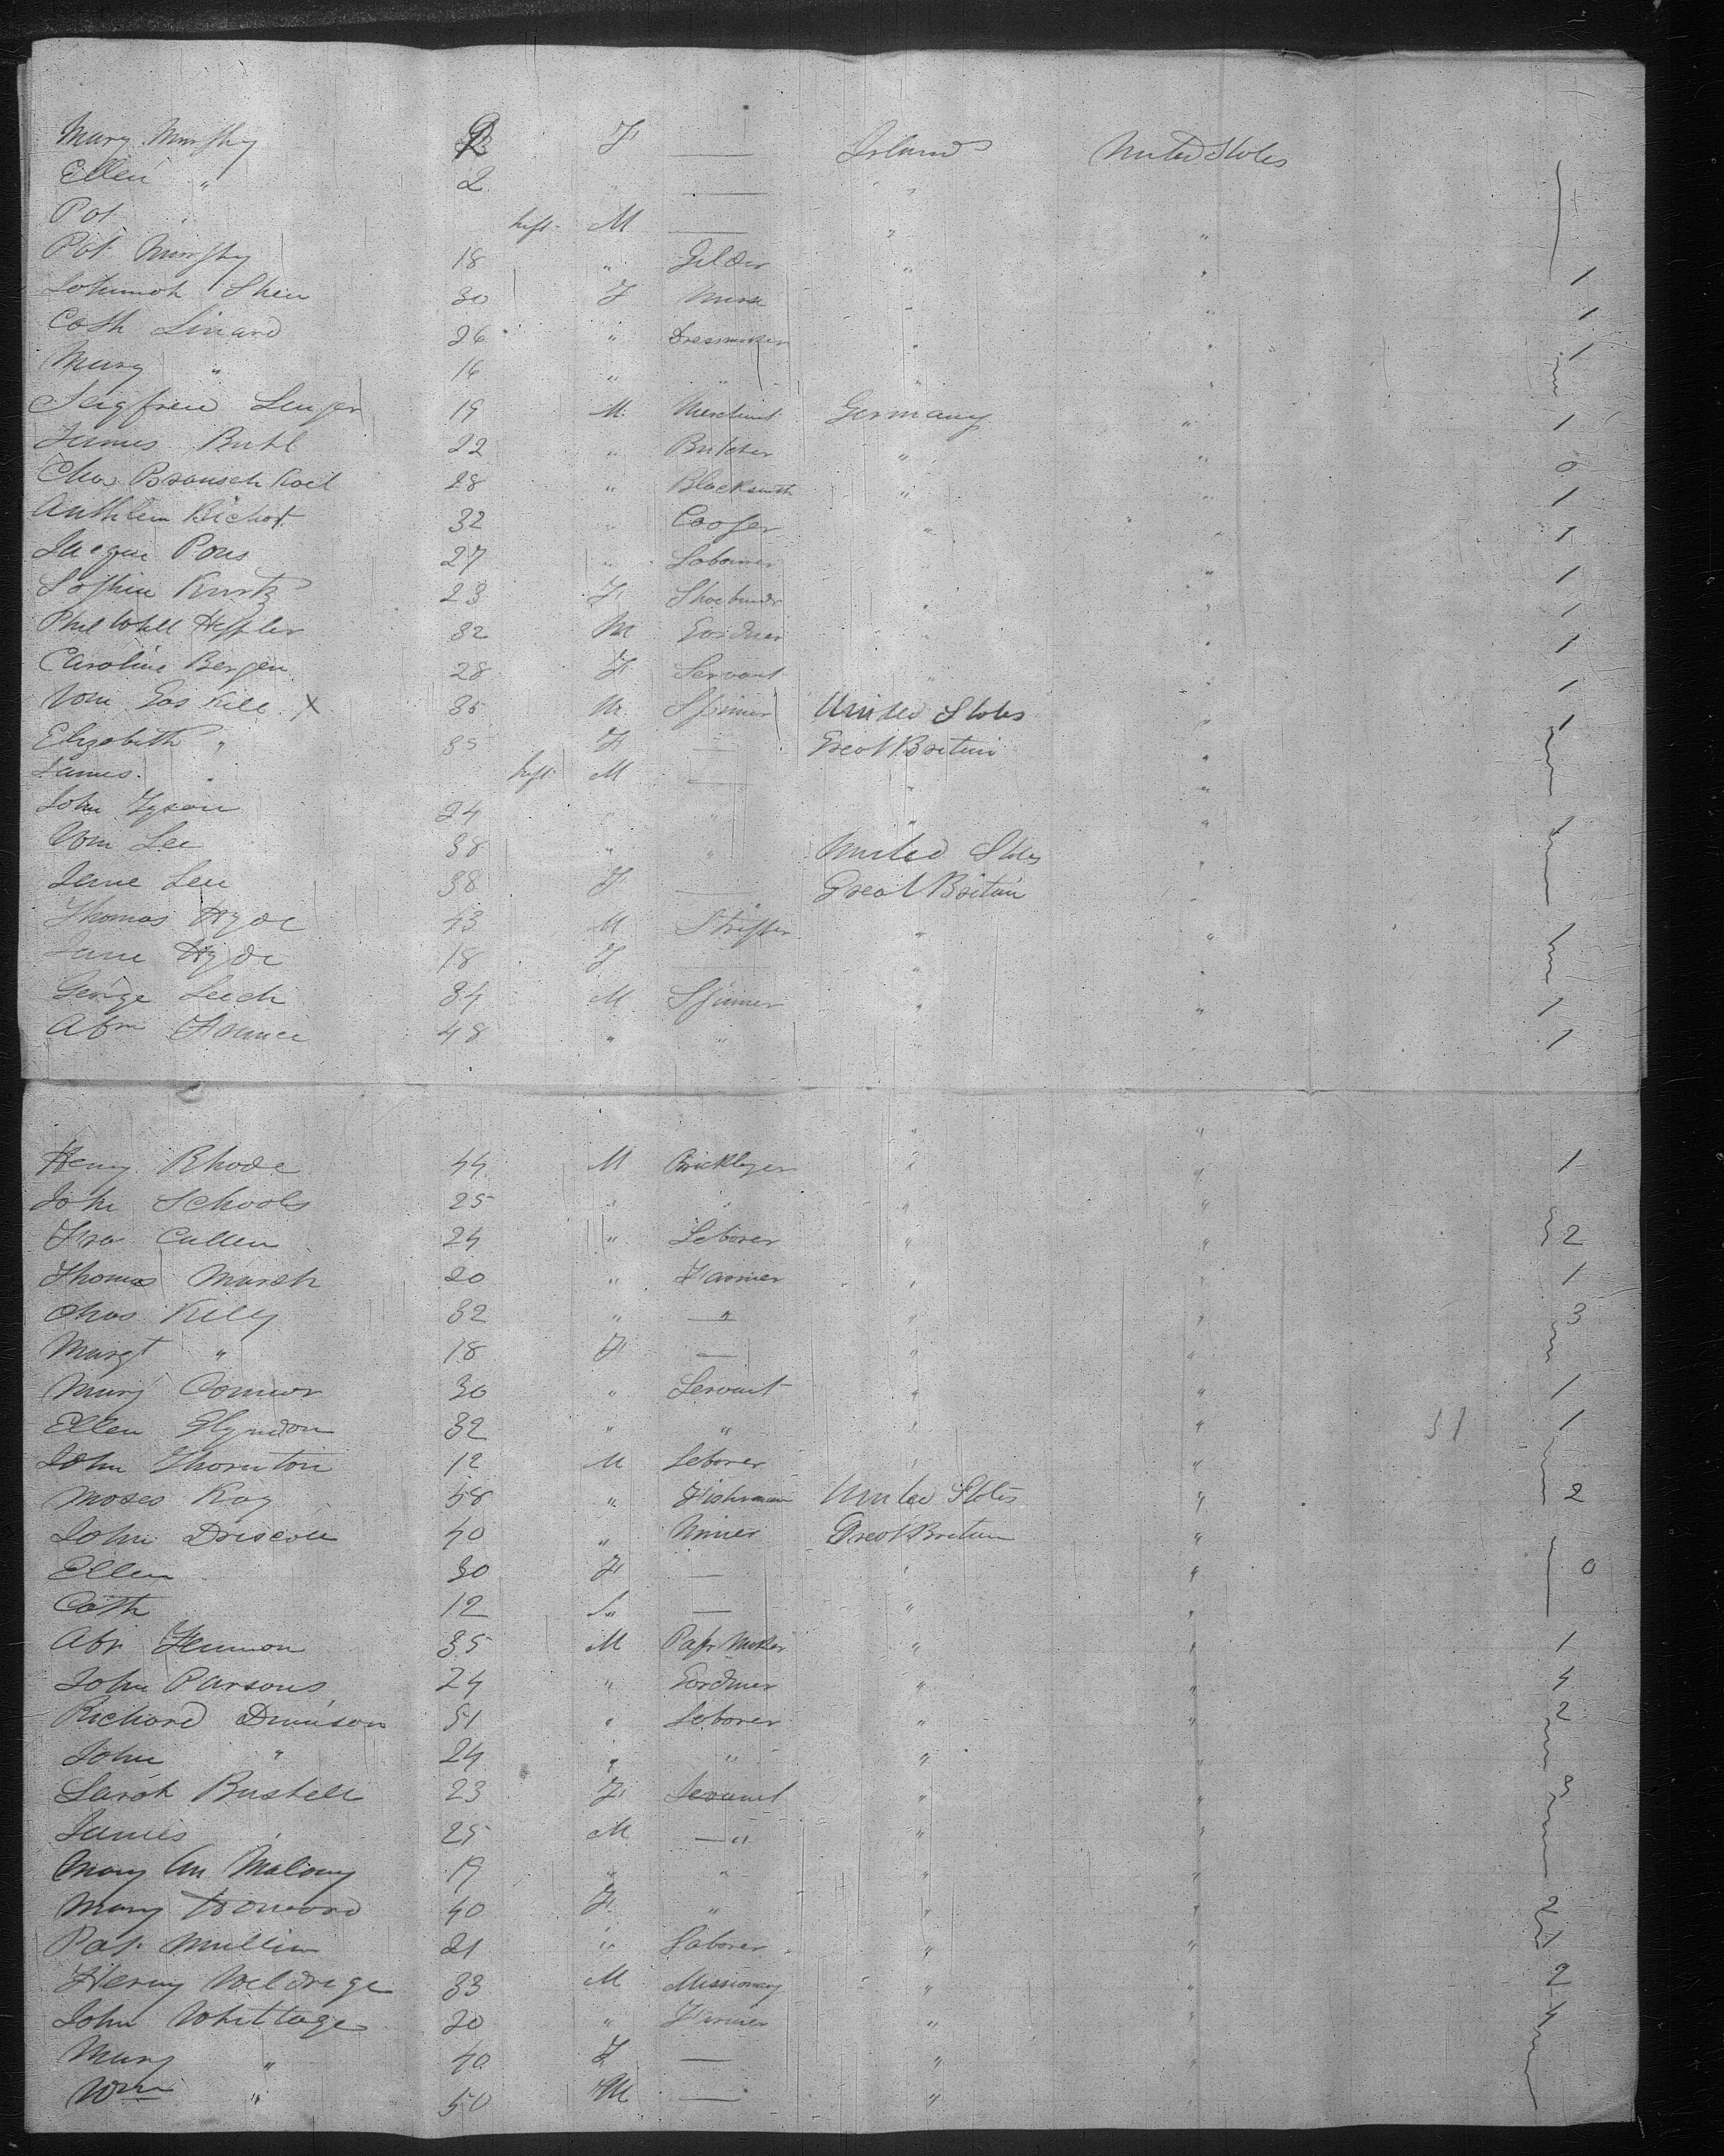 Mary Murphy F — Ireland United States
Ellen " 2 " — " "
Pat " Inft. M — " "
Pat Murphy 18 " Gilder " " 1
Johannah Shea 30 F Nurse " " 1
Cath Linard 26 " Dressmaker " " 1
Mary " 16 " " " "
Seigfreid 19 M Merchant Germany " 1
James Buhl 22 " Butcher " " 0
Chas 28 " Blacksmith " " 1
Anthlem Bichot 32 " Cooper " " 1
Jacque Pons 27 " Labourer " " 1
Sophie Kurtz 23 F Shoebinder " " 1
Phil Will Heffler 32 M Gardner " " 1
Caroline Bergen 28 F Servant " " 1
Wm Gas Kill X 35 M Spinner United States " 1
Elizabeth " 35 F — Great Britain "
James " Inft M — " "
John Tyson 24 " " " " 1
Wm Lee 38 " " United States "
Jane Lee 38 F — Great Britain "
Thomas Hyde 43 M Stripper " " 1
Jane Hyde 18 F — " "
George Leech 34 M Spinner " " 1
Abm 48 " " " " 1
" "
Henry Rhode 44 M Bricklayer " " 1
John Schools 25 " " " "
Fra Cullen 24 " Laborer " " 2
Thomas Marsh 20 " Farmer " " 1
Chas Kelly 32 " " " " 3
Margt " 18 F — " "
Mary Connor 30 " Servant " " 1
Ellen Glyndon 32 " " " " 31 1
John Thornton 12 M Laborer " "
Moses Kay 58 " Fishman United States " 2
John Driscoll 40 " Miner Great Britain "
Ellen 30 F — " " 0
Cath 12 " — " "
Abr Hennion 35 M Papr Maker " " 1
John Parsons 24 " Gardner " " 4
Richard Dennison 51 " Laborer " " 2
John " 24 " " " "
Sarah Bushell 23 F Servant " " 3
James " 25 M — " " "
Mary An Malony 19 " " " "
Mary Howard 40 F " " " 2
Pat Mullin 21 " Laborer " " 1
Henry Weldrige 33 M Missionary " " 2
John Whittage 20 " Farmer " " 4
Mary " 40 F — " "
Wm " 50 M — "